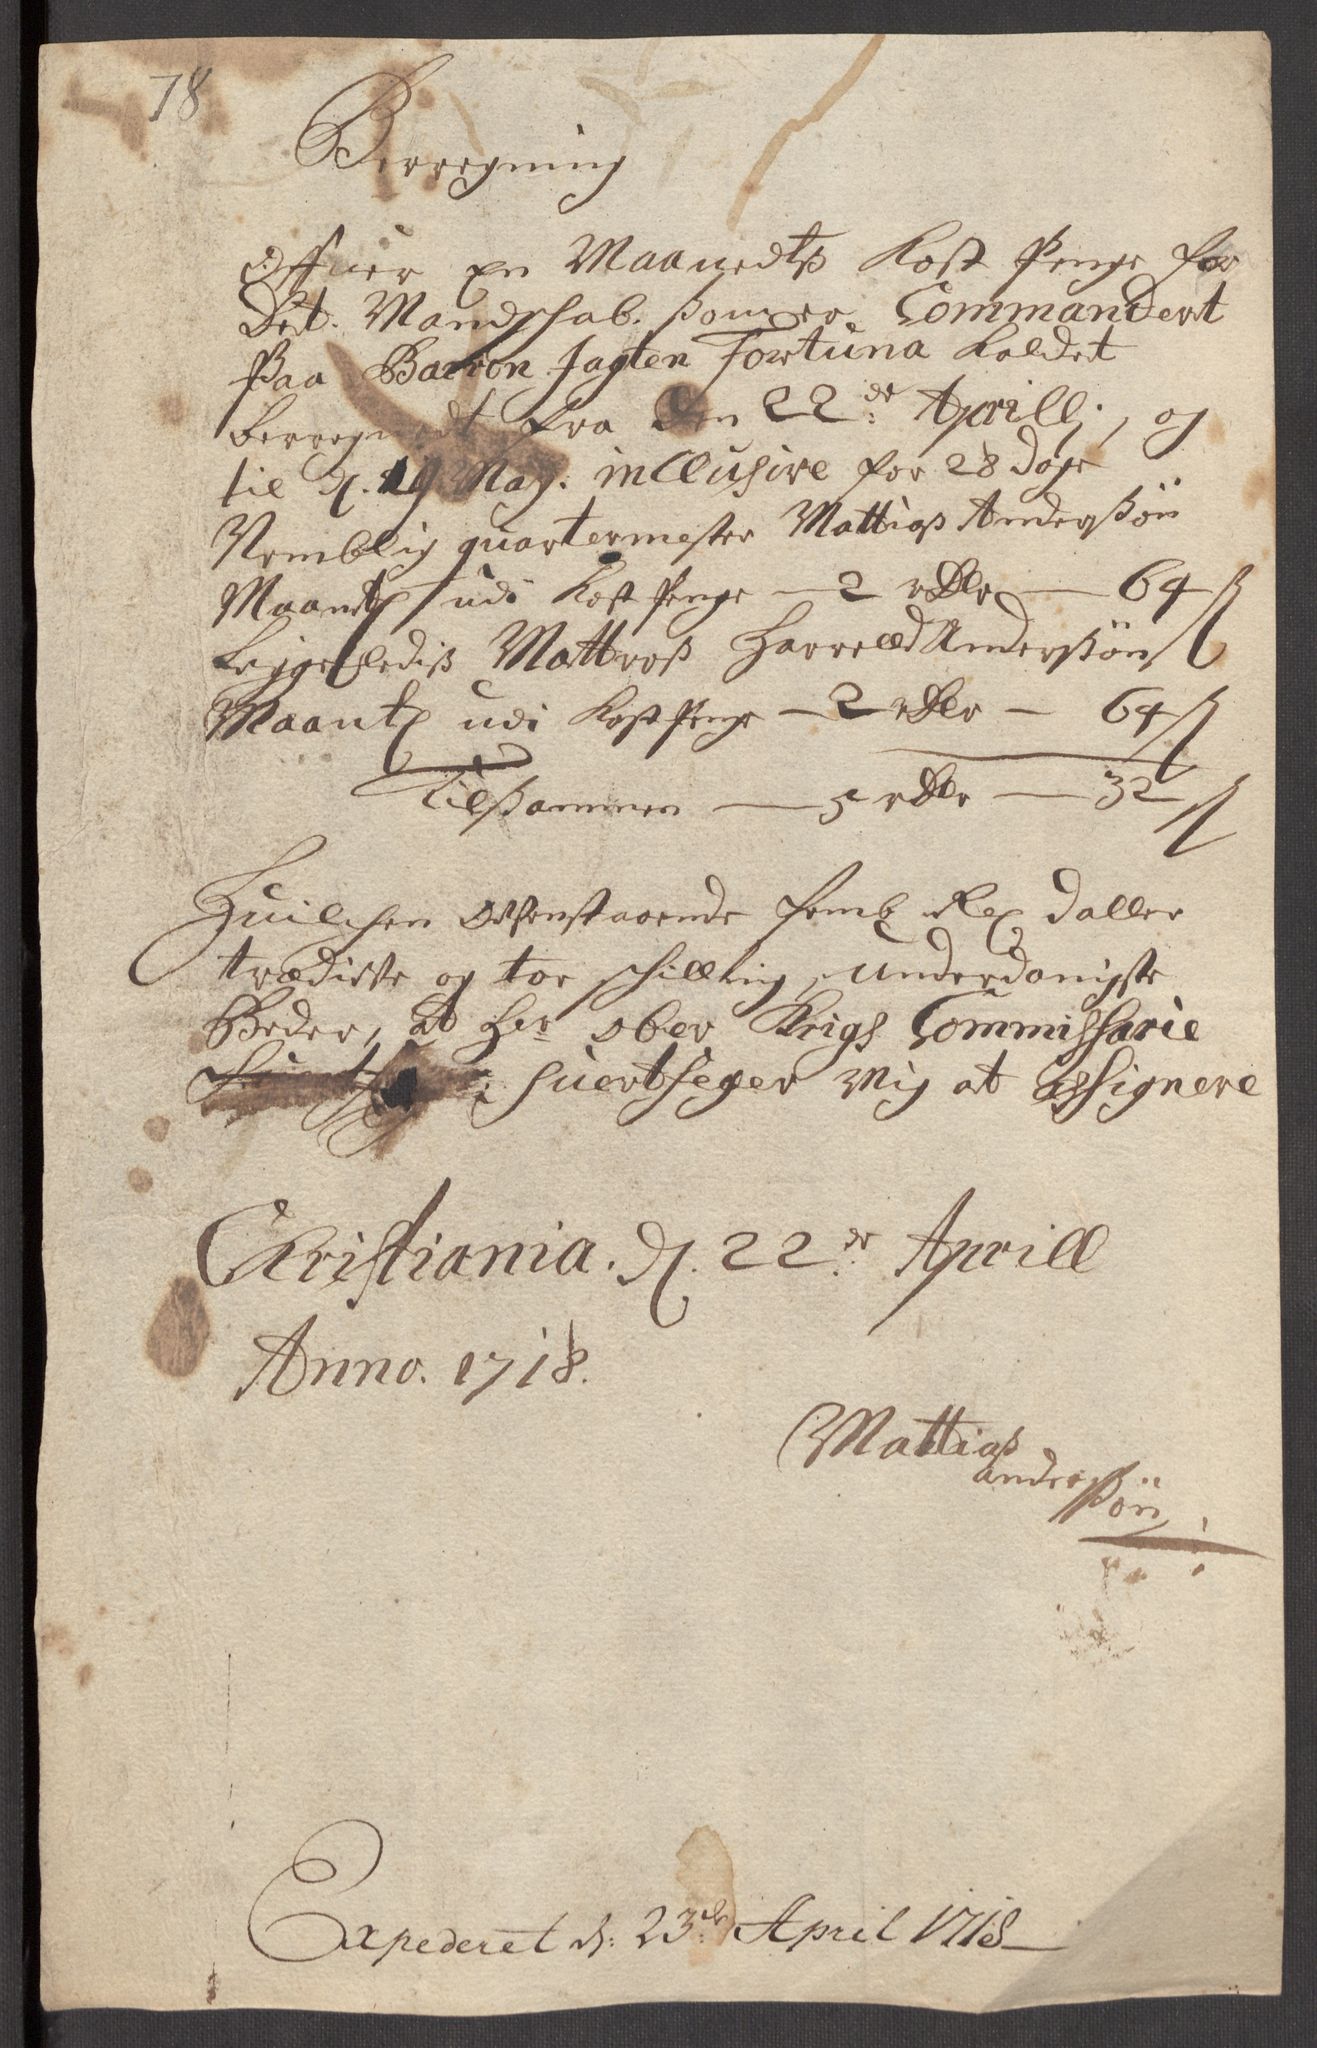 78
Berregning
Offuer En Maanedtß Kost Penge for
Det. Mandschab. somer Commandert
Paa Barcon Jagten Fortuna Kaldet
berregnedt fra den 22de Aprill, og
til d. 19 Maj. incllusive for 28 Dage
Nemblig quartermester Mattiaß Anderßön
Maantl udi Kost Penge — 2 rdlr — 64 ß
Liggelediß Mattroß Harrelld Anderßön
Maantl udi Kost Penge — 2 rdlr — 64 ß
Tilsammen — 5 rdlr — 32 ß
Huilchen Ofvenstaaende femb Rex daller
trædiefve og toe schilling, underdanigste
Beder, at Her ober Krigs Commissarie
huertseger Mig at assignere
Christiania. d. 22de Aprill
Anno. 1718.
Mattiaß
anderßön
Expederet d: 23de April 1718